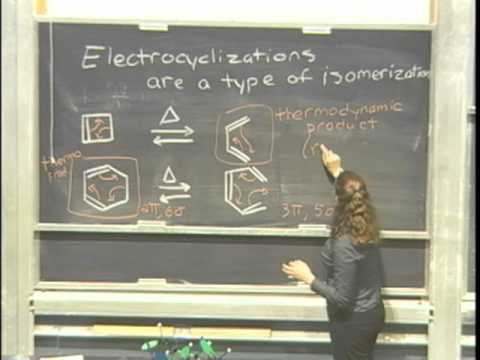 Electrocyclizations
are a type of isomerization
Δ
thermodynamic
product
(r
thermo
prod
Δ
2π, 6σ
3π, 5σ